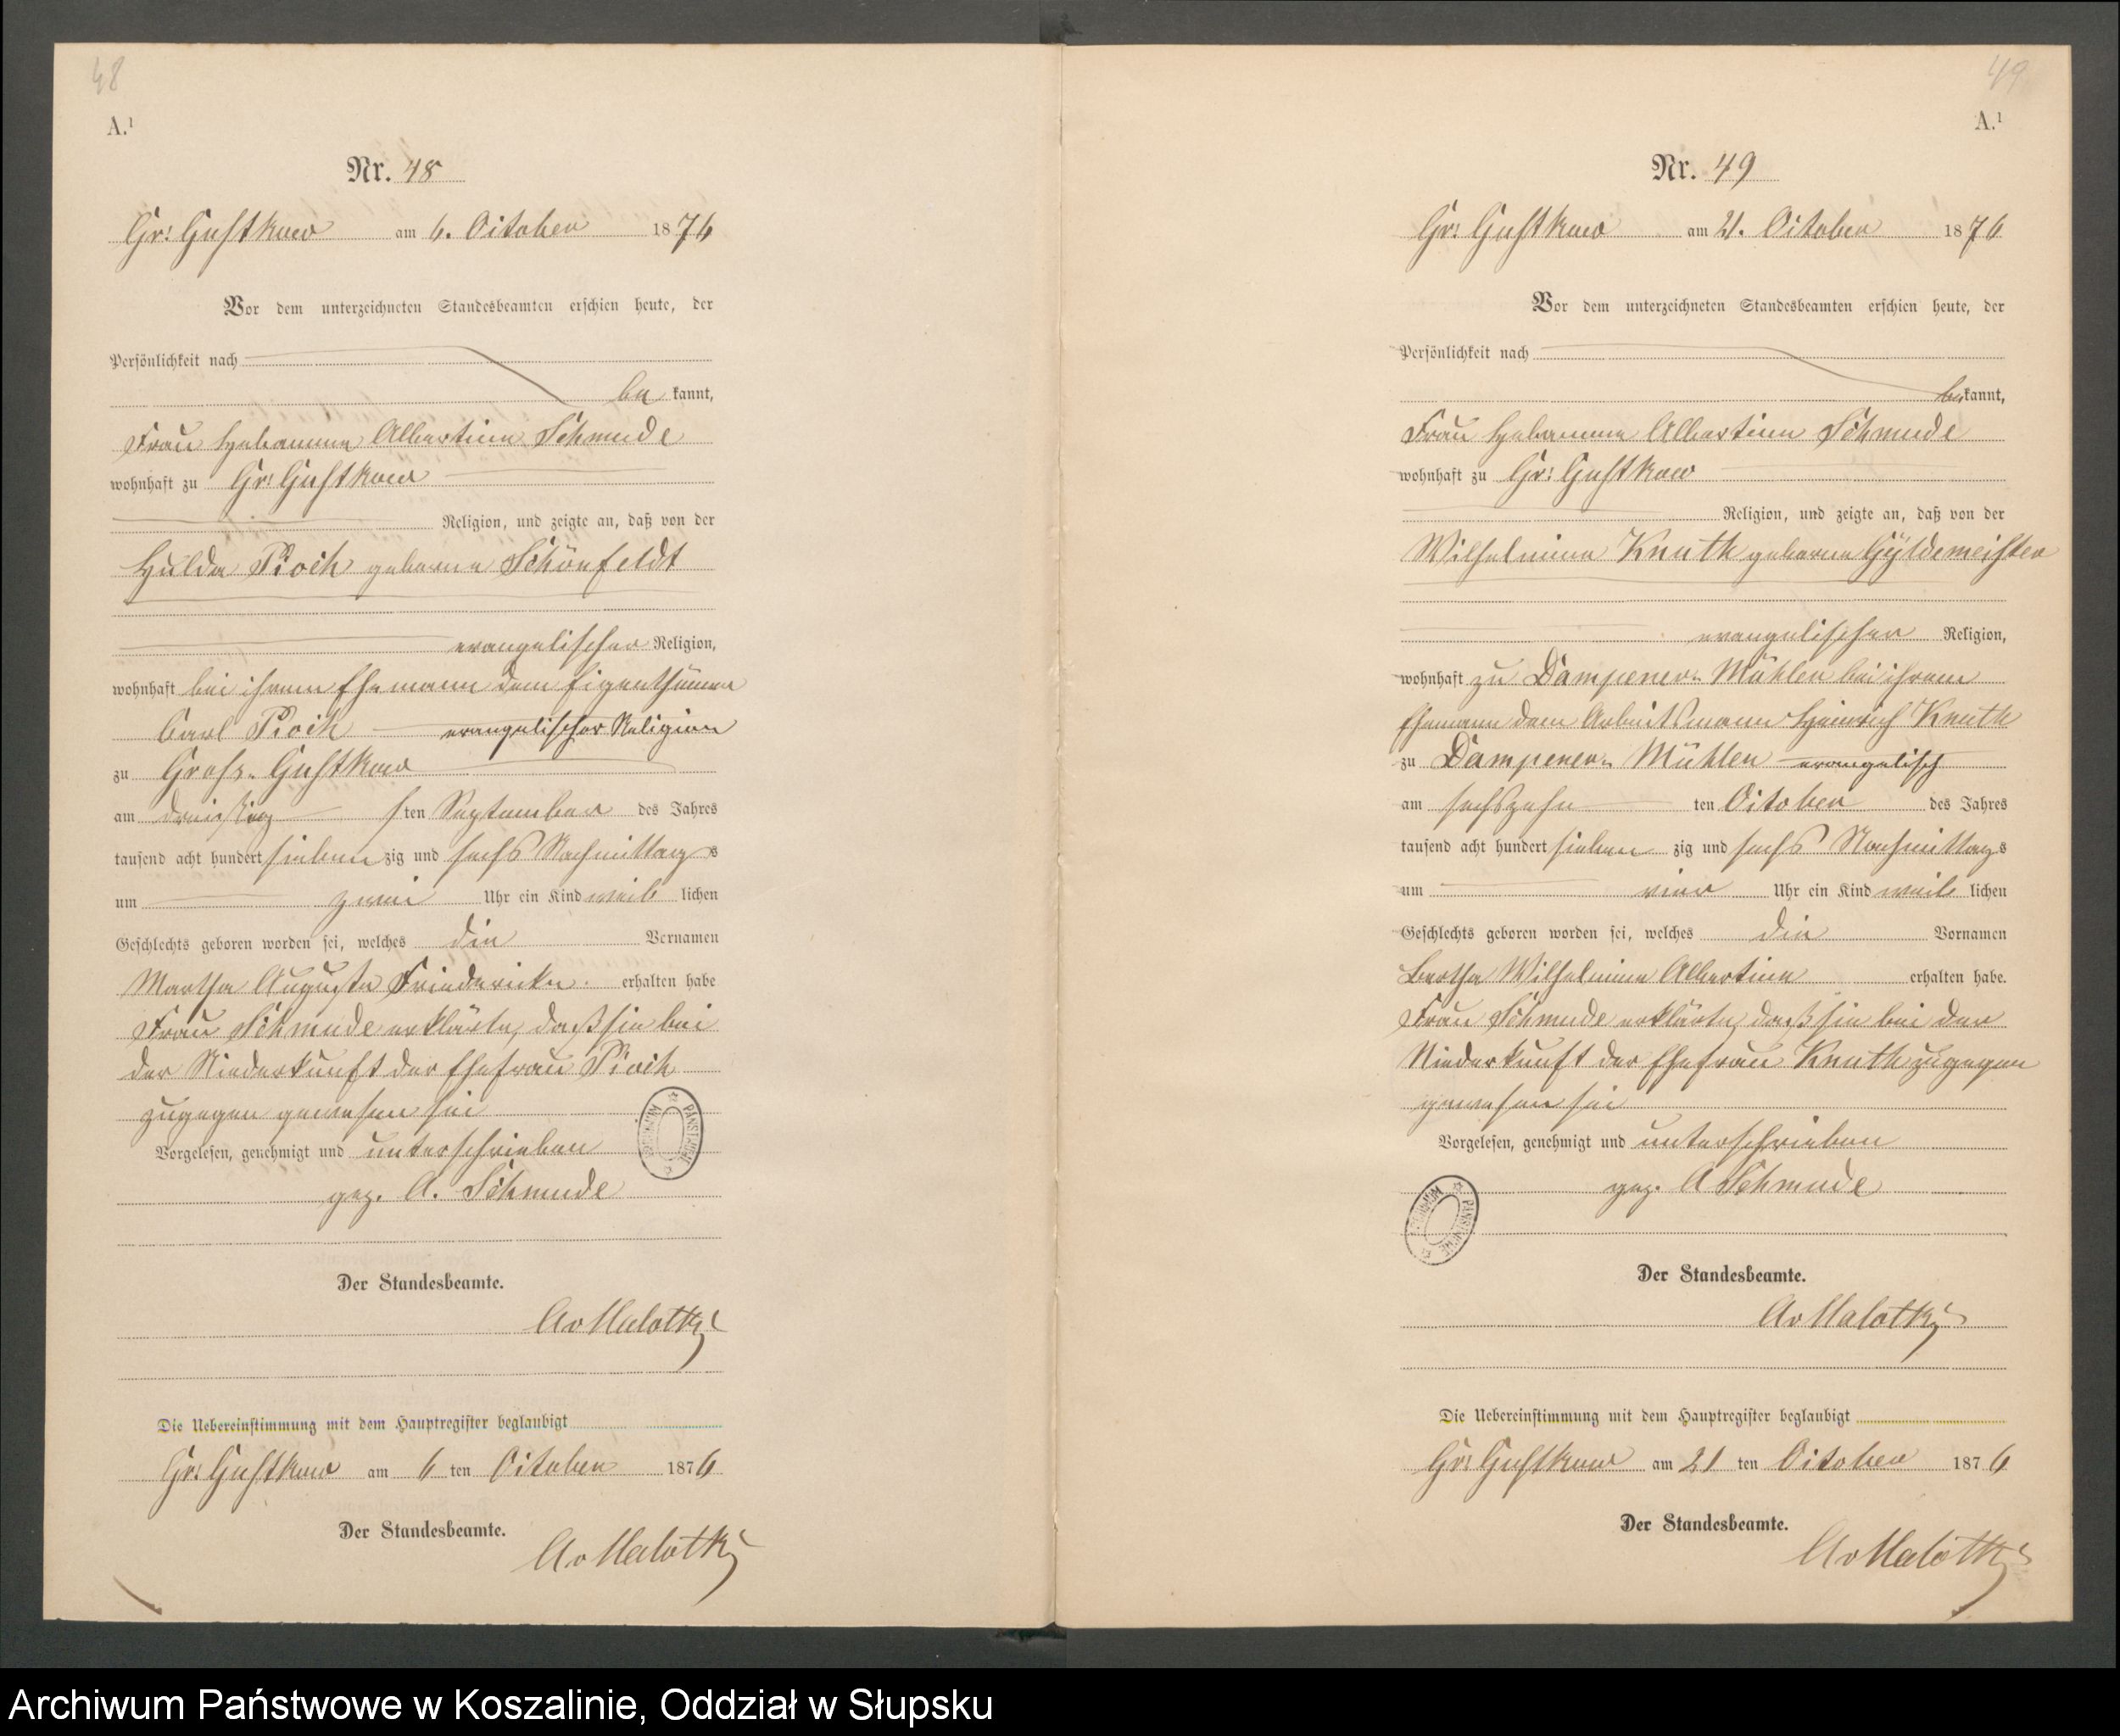 48
A.¹
Nr. 48
Gr: Gustkow am 6. October 1876
Vor dem unterzeichneten Standesbeamten erschien heute, der
Persönlichkeit nach
be kannt,
Frau Hebamme Albertine Schmude
wohnhaft zu Gr: Gustkow
Religion, und zeigte an, daß von der
Hulda Pioch geborne Schönfeldt
evangelischer Religion,
wohnhaft bei ihrem Ehemann dem Eigenthümer
Carl Pioch evangelischer Religion
zu Gross-Gustkow
am dreißig sten September des Jahres
tausend acht hundert sieben zig und sechs Nachmittags
um zwei Uhr ein Kind weib lichen
Geschlechts geboren worden sei, welches die Vornamen
Martha Auguste Friedericke erhalten habe
Frau Schmude erklärte, daß sie bei
der Niederkunft der Ehefrau Pioch
zugegen gewesen sei
Vorgelesen, genehmigt und unterschrieben
gez. A. Schmude
Der Standesbeamte.
Av Malottki
Die Uebereinstimmung mit dem Hauptregister beglaubigt
Gr: Gustkow am 6 ten October 1876
Der Standesbeamte.
Av Malottki
49
A.¹
Nr. 49
Gr: Gustkow am 21. October 1876
Vor dem unterzeichneten Standesbeamten erschien heute, der
Persönlichkeit nach
be kannt,
Frau Hebamme Albertine Schmude
wohnhaft zu Gr: Gustkow
Religion, und zeigte an, daß von der
Wilhelmine Knuth geborne Gÿldemeister
evangelischer Religion,
wohnhaft zu Dampener-Mühlen bei ihrem
Ehemann dem Arbeitsmann Heinrich Knuth
zu Dampener-Mühlen evangelisch
am sechszehn ten October des Jahres
tausend acht hundert sieben zig und sechs Nachmittags
um vier Uhr ein Kind weib lichen
Geschlechts geboren worden sei, welches die Vornamen
Bertha Wilhelmine Albertine erhalten habe.
Frau Schmude erklärte, daß sie bei der
Niederkunft der Ehefrau Knuth zugegen
gewesen sei
Vorgelesen, genehmigt und unterschrieben
gez. A Schmude
Der Standesbeamte.
Av Malottki
Die Uebereinstimmung mit dem Hauptregister beglaubigt
Gr: Gustkow am 21 ten October 1876
Der Standesbeamte.
Av Malottki
Archiwum Państwowe w Koszalinie, Oddział w Słupsku